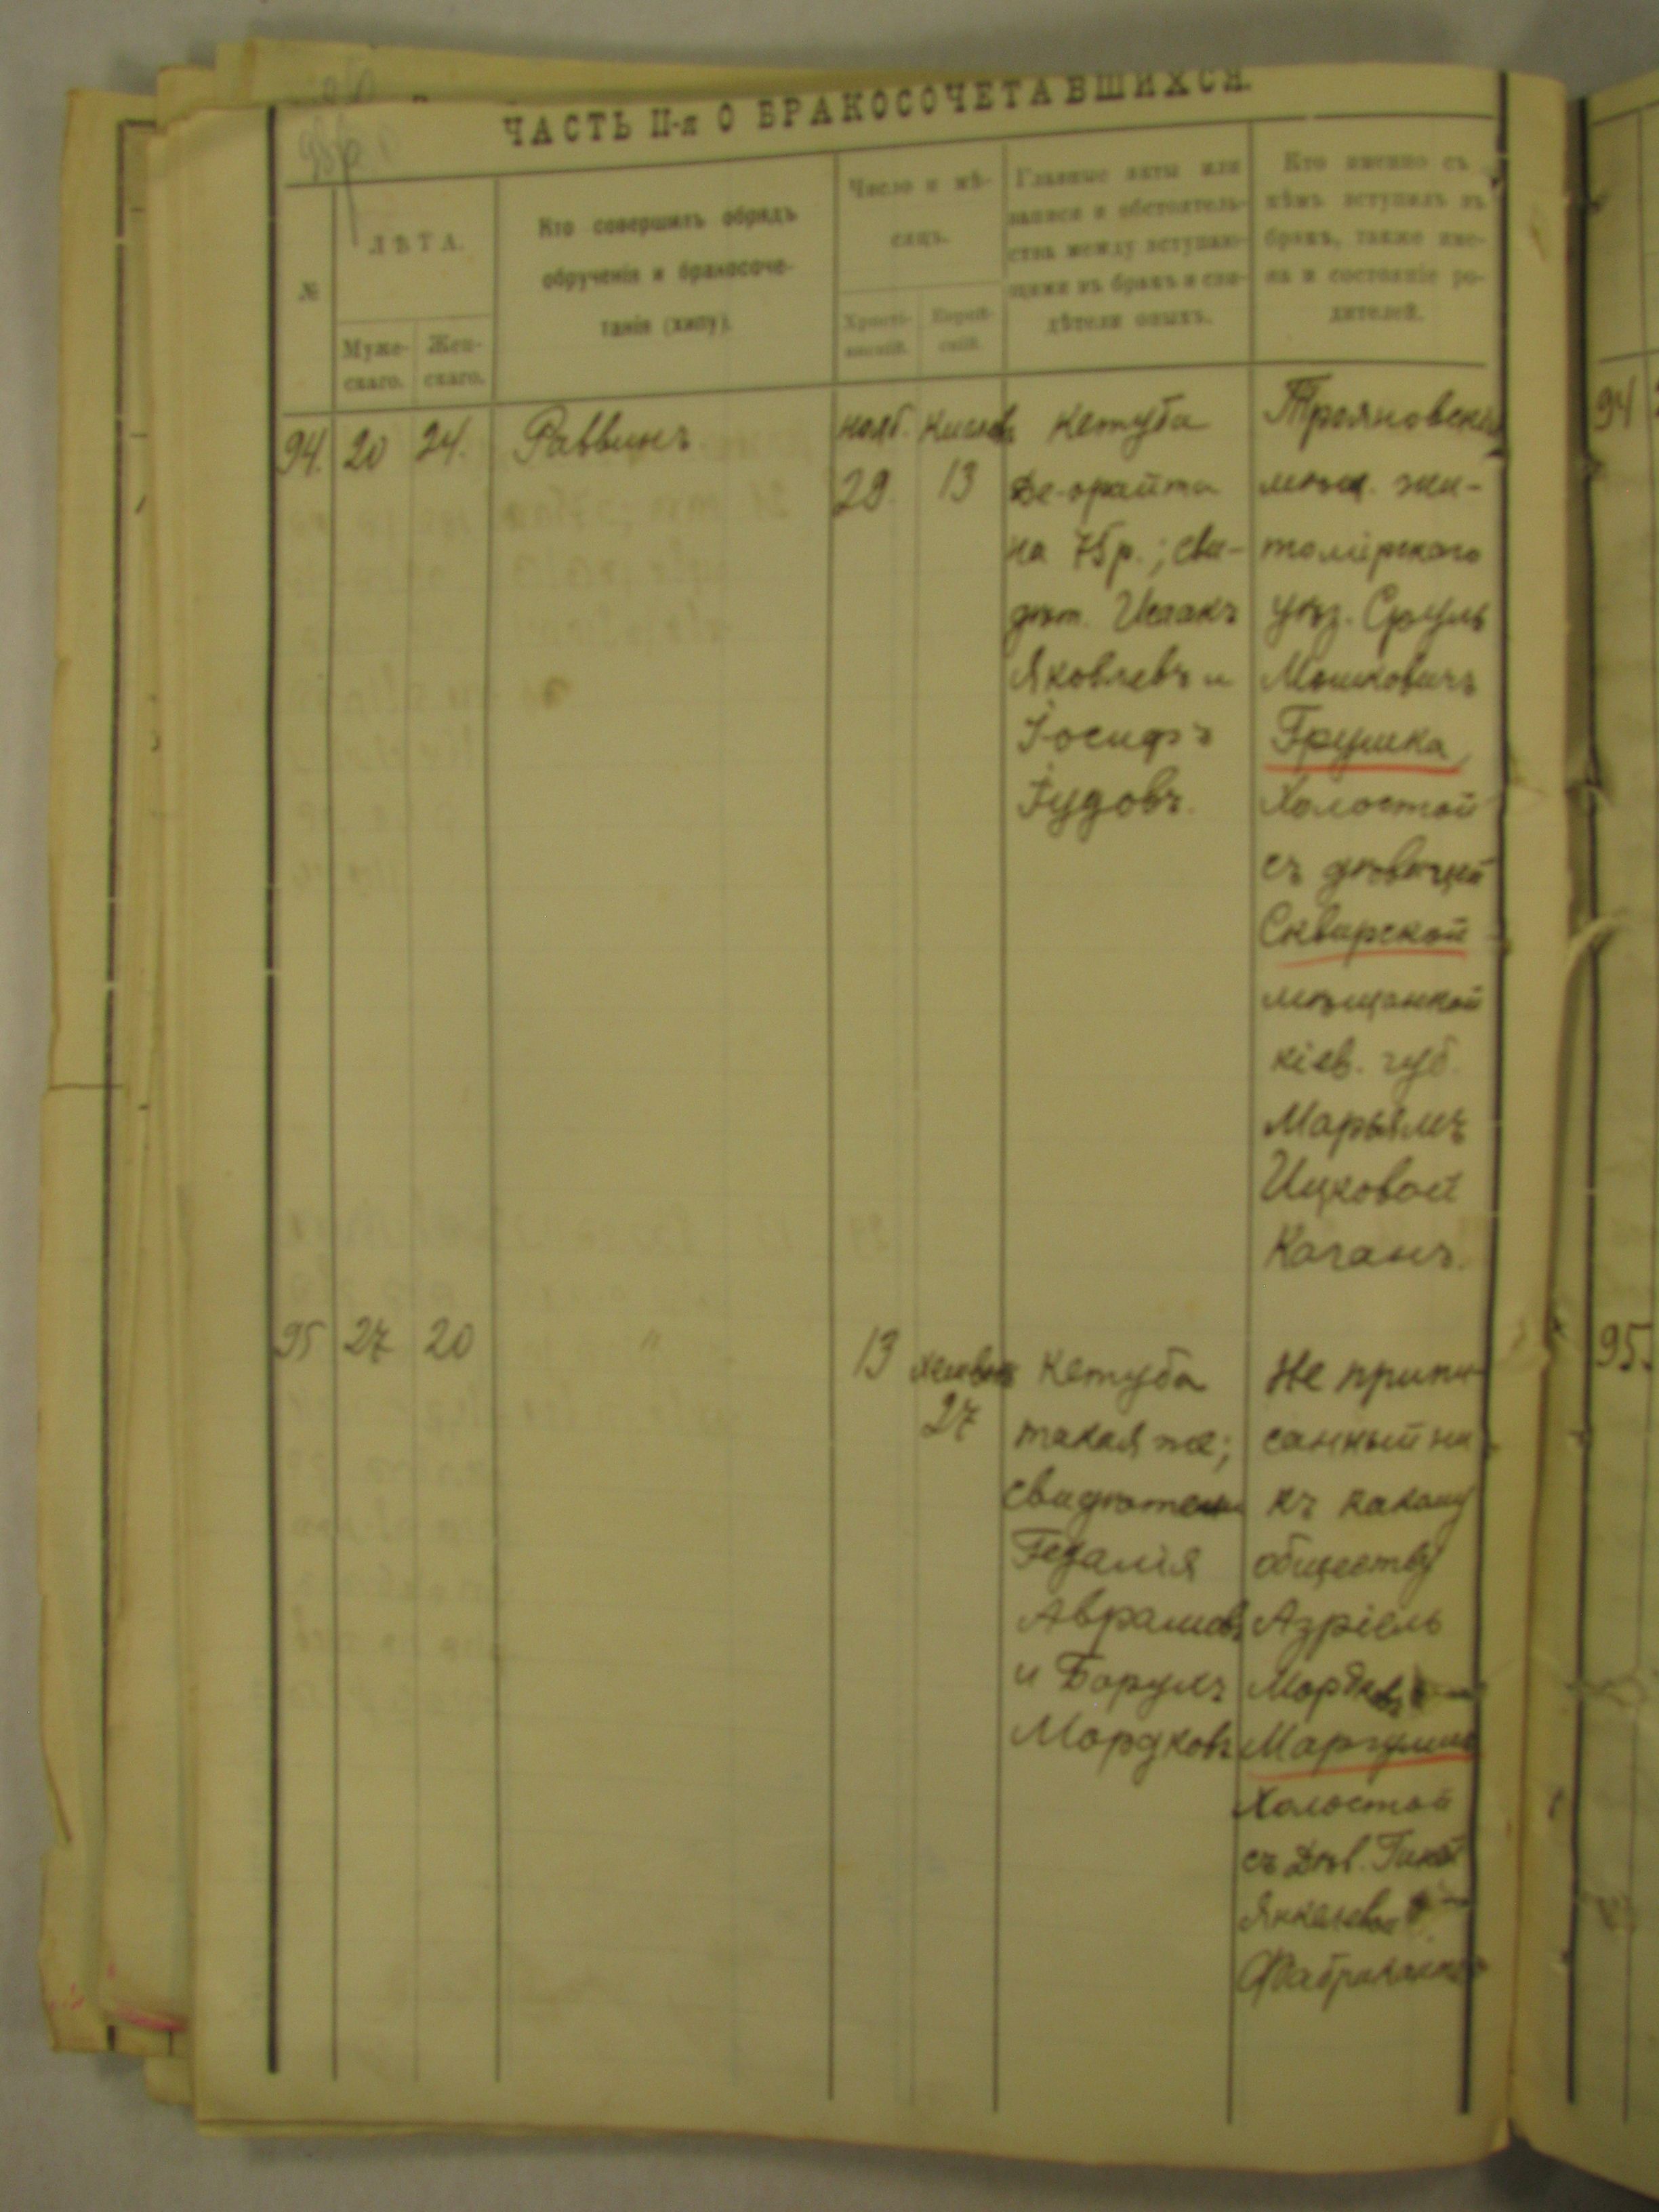 ЧАСТЬ II-я О БРАКОСОЧЕТАВШИХСЯ.
№
ЛѢТА.
Муже-
скаго.
Жен-
скаго.
Кто совершилъ обрядъ
обрученія и бракосоче-
танія (хипу).
Число и мѣ-
сяцъ.
Христі-
анскій.
Еврей-
скій.
Главные акты или
записи и обстоятель-
ства между вступаю-
щими въ бракъ и сви-
дѣтели оныхъ.
Кто именно съ
кѣмъ вступилъ въ
бракъ, также име-
на и состояніе ро-
дителей.
94. 20 24. Раввинъ
нояб.
29.
Кислев
13
Кетуба
Де-орайта
на 75 р.; сви-
дѣт. Исаакъ
Яковлевъ и
Іосифъ
Іудовъ.
Трояновскій
мѣщ. жи-
томірскаго
уѣз. Сруль
Мошковичъ
Грушка,
Холостой
съ дѣвицей
Сквирской
мѣщанкой
кіев. губ.
Марьямъ
Ицковой
Каганъ.
95 27 20 "
13
Хешван
27
Кетуба
такая же;
свидѣтели
Гедалія
Аврамовъ
и Борухъ
Мордковъ
Не припи-
санный ни
къ какому
обществу
Азріель
Мордков
Маргулисъ
Холостой
съ Дѣв.
Янкелевой
94
95.